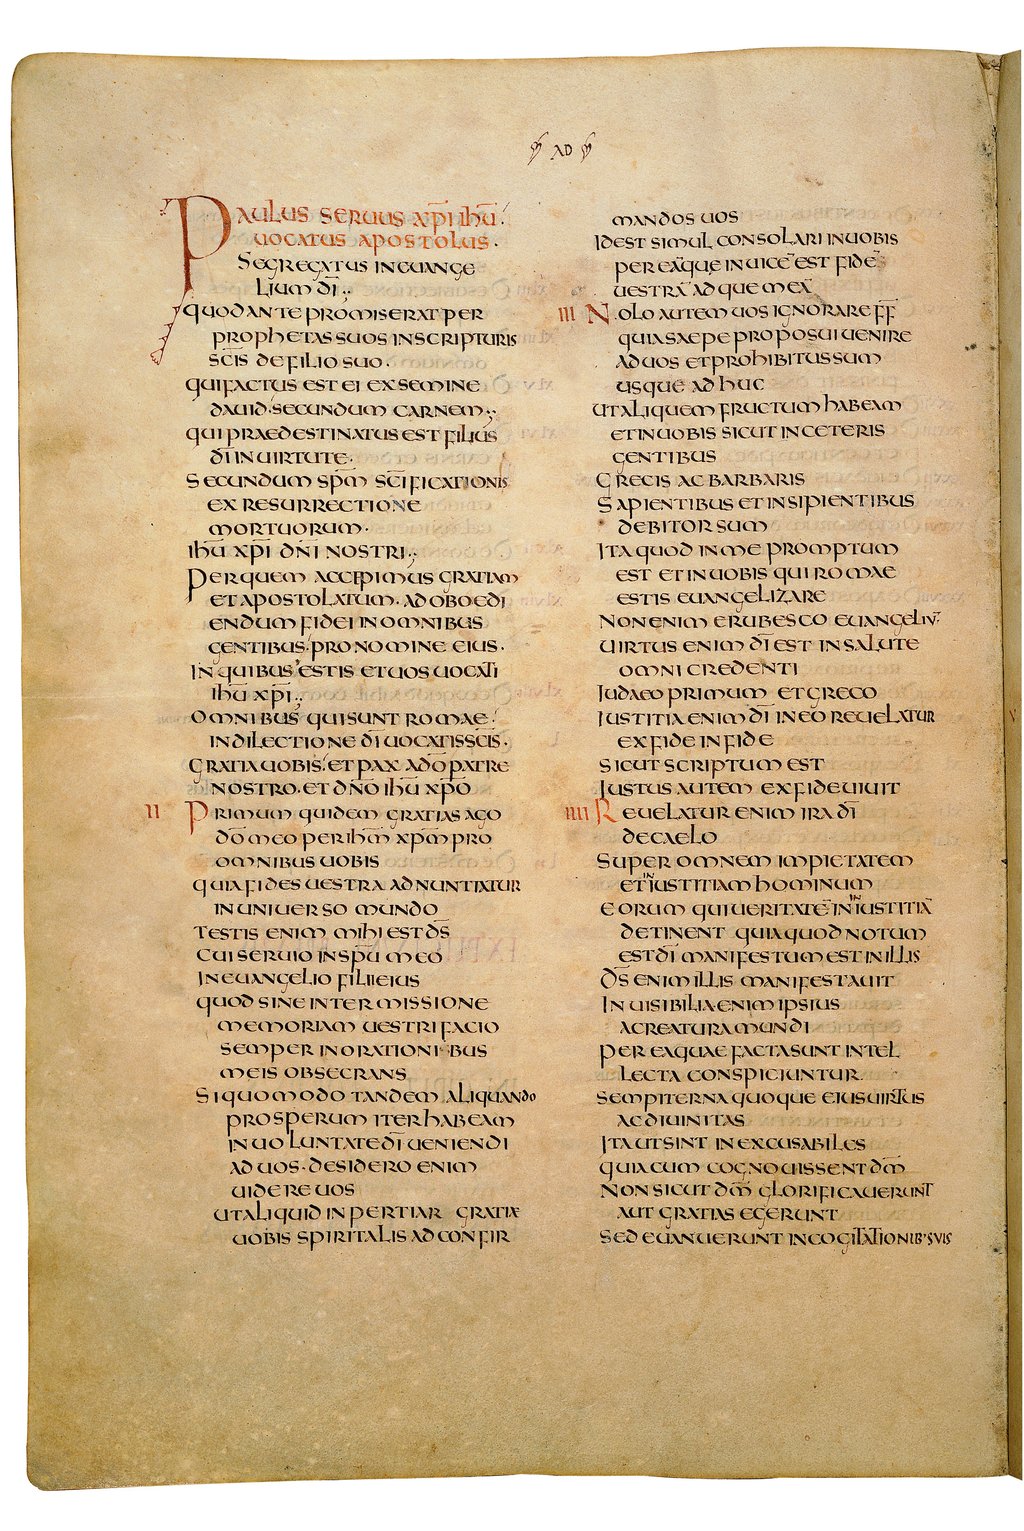 AD
PAULUS SERUUS XPI IHU
UOCATUS APOSTOLUS·
SEGREGATUS INEUANGE
LIUM DI
QUOD ANTE PROMISERAT PER
PROPHETAS SUOS INSCRIPTURIS
SCIS DE FILIO SUO·
QUI FACTUS EST EI EX SEMINE
DAUID·SECUNDUM CARNEM
QUI PRAEDESTINATUS EST FILIUS
DI IN UIRTUTE·
SECUNDUM SPM SCIFICATIONIS
EX RESURRECTIONE
MORTUORUM·
IHU XPI DNI NOSTRI
PER QUEM ACCEPIMUS GRATIAM
ET APOSTOLATUM·AD OBOEDI
ENDUM FIDEI IN OMNIBUS
GENTIBUS PRO NOMINE EIUS·
IN QUIBUS ESTIS ET UOS UOCATI
IHU XPI
OMNIBUS QUI SUNT ROMAE
IN DILECTIONE DI UOCATIS SCIS·
GRATIA UOBIS ET PAX A DO PATRE
NOSTRO·ET DNO IHU XPO
II PRIMUM QUIDEM GRATIAS AGO
DO MEO PER IHM XPM PRO
OMNIBUS UOBIS
QUIA FIDES UESTRA ADNUNTIATUR
IN UNIUERSO MUNDO
TESTIS ENIM MIHI EST DS
CUI SERUIO IN SPU MEO
IN EUANGELIO FILII EIUS
QUOD SINE INTERMISSIONE
MEMORIAM UESTRI FACIO
SEMPER IN ORATIONIBUS
MEIS OBSECRANS
SI QUOMODO TANDEM ALIQUANDO
PROSPERUM ITER HABEAM
IN UOLUNTATE DI UENIENDI
AD UOS·DESIDERO ENIM
UIDERE UOS
UT ALIQUID INPERTIAR GRATIAE
UOBIS SPIRITALIS AD CONFIR
MANDOS UOS
ID EST SIMUL CONSOLARI IN UOBIS
PER EAQUE INUICE EST FIDE
UESTRA ADQUE MEA
III NOLO AUTEM UOS IGNORARE FF
QUIA SAEPE PROPOSUI UENIRE
AD UOS ET PROHIBITUS SUM
USQUE AD HUC
UT ALIQUEM FRUCTUM HABEAM
ET IN UOBIS SICUT IN CETERIS
GENTIBUS
GRECIS AC BARBARIS
SAPIENTIBUS ET INSIPIENTIBUS
DEBITOR SUM
ITA QUOD IN ME PROMPTUM
EST ET IN UOBIS QUI ROMAE
ESTIS EUANGELIZARE
NON ENIM ERUBESCO EUANGELIU
UIRTUS ENIM DI EST IN SALUTE
OMNI CREDENTI
IUDAEO PRIMUM ET GRECO
IUSTITIA ENIM DI IN EO REUELATUR
EX FIDE IN FIDE
SICUT SCRIPTUM EST
IUSTUS AUTEM EX FIDE UIUIT
IIII REUELATUR ENIM IRA DI
DE CAELO
SUPER OMNEM IMPIETATEM
ET INIUSTITIAM HOMINUM
EORUM QUI UERITATE IN INIUSTITIA
DETINENT QUIA QUOD NOTUM
EST DI MANIFESTUM EST IN ILLIS
DS ENIM ILLIS MANIFESTAUIT
INUISIBILIA ENIM IPSIUS
A CREATURA MUNDI
PER EA QUAE FACTA SUNT INTEL
LECTA CONSPICIUNTUR
SEMPITERNA QUOQUE EIUS UIRTUS
AC DIUINITAS
ITA UT SINT INEXCUSABILES
QUIA CUM COGNOUISSENT DM
NON SICUT DM GLORIFICAUERUNT
AUT GRATIAS EGERUNT
SED EUANUERUNT IN COGITATIONIB·SUIS